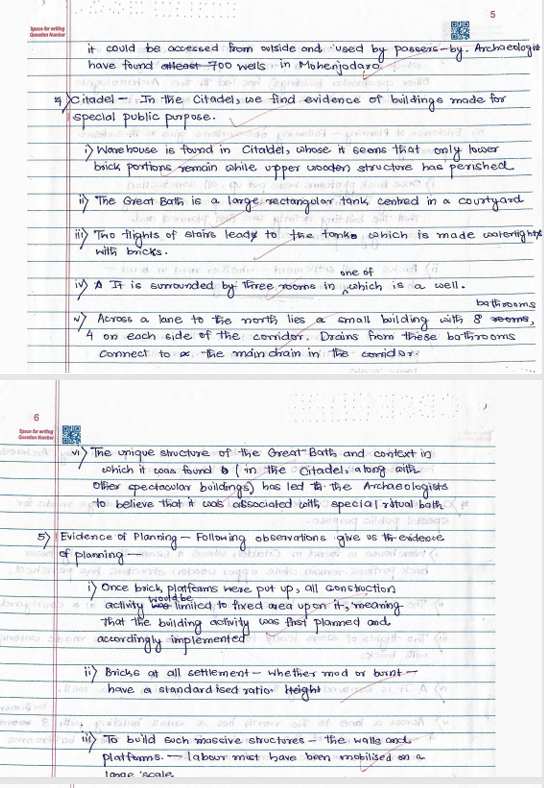 5
Space for writing
Question Number
it could be accessed from outside and used by passers-by. Archaeologist
have found atleast 700 wells in Mohenjodaro.
4) Citadel - In the Citadel, we find evidence of buildings made for
special public purpose.
i) Warehouse is found in Citadel, whose it seems that only lower
brick portions remain while upper wooden structure has perished
ii) The Great Bath is a large rectangular tank, centred in a courtyard
iii) Two flights of stairs leads to the tank which is made watertight
with bricks.
iv) It is surrounded by three rooms in one of which is a well.
v) Across a lane to the north lies a small building with 8 rooms, bathrooms
4 on each side of the corridor. Drains from these bathrooms
connect to the main drain in the corridor.
6
Space for writing
Question Number
vi) The unique structure of the Great Bath and context in
which it was found (in the Citadel, along with
other spectacular buildings) has led the Archaeologists
to believe that it was associated with special ritual bath
5) Evidence of Planning - Following observations give us the evidence
of planning -
i) Once brick platforms were put up, all construction
activity would be limited to fixed area upon it, meaning
that the building activity was first planned and
accordingly implemented
ii) Bricks at all settlement - whether mod or burnt -
have a standardised ratio Height
iii) To build such massive structures - the walls and
platforms. - labour must have been mobilised on a
large scale.